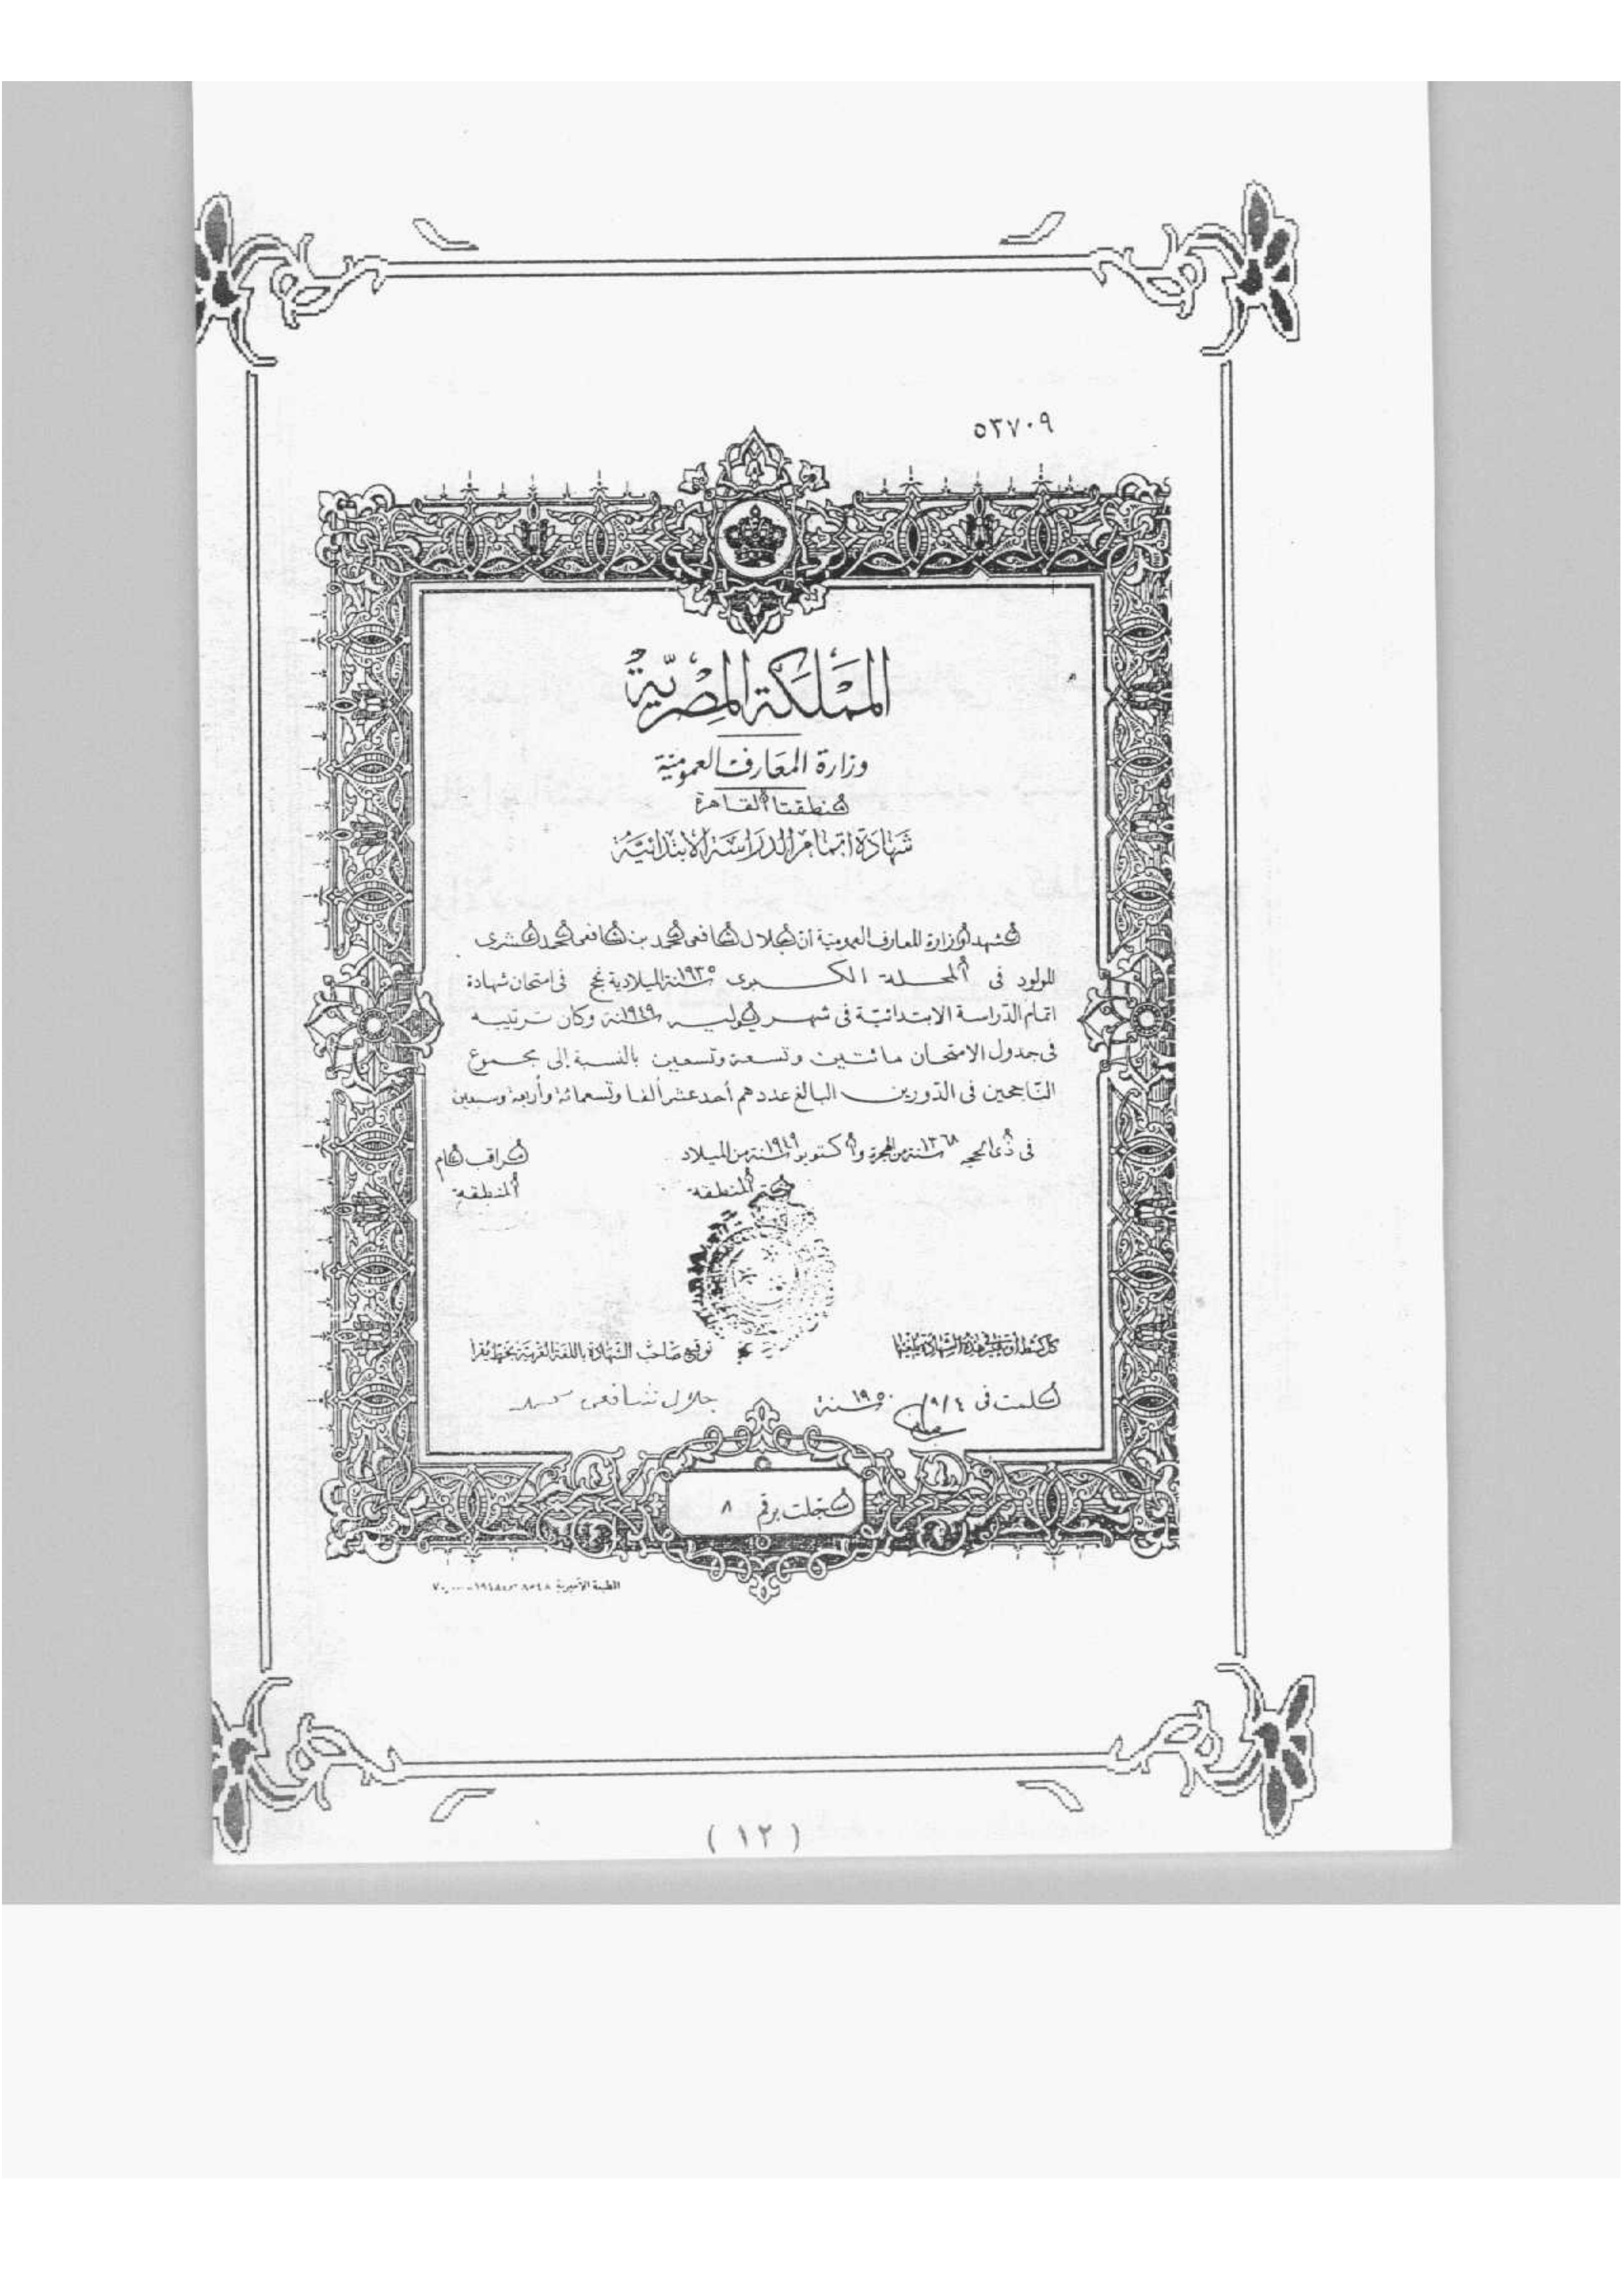 ٥٣٧٠٩
المملكة المصرية
وزارة المعارف العمومية
منطقة القاهرة
شهادة اتمام الدراسة الابتدائية
تشهد وزارة المعارف العمومية أن جلال شافعى محمد بن شافعى محمد
المولود فى المحلة الكبرى سنة ١٩٣٥ الميلادية نجح فى امتحان شهادة
اتمام الدراسة الابتدائية فى شهر يوليه سنة ١٩٤٩ وكان ترتيبه
فى جدول الامتحان مائتين وتسعة وتسعين بالنسبة إلى مجموع
الناجحين فى الدورين البالغ عددهم أحد عشر ألفا وتسعمائة وأربعة وسبعين
فى ذى الحجه سنة ١٣٦٨ من الهجرة و أكتوبر سنة ١٩٤٩ من الميلاد
مراقب عام
المنطقة
ختم المنطقة
كل كشط أو تغيير فى هذه الشهادة يلغيها
توقيع صاحب الشهادة باللغة العربية بخط يقرأ
سلمت فى ٩/٤/ سنة ١٩٥٠
جلال شافعى محمد
سجلت برقم ٨
المطبعة الأميرية
( ١٢ )